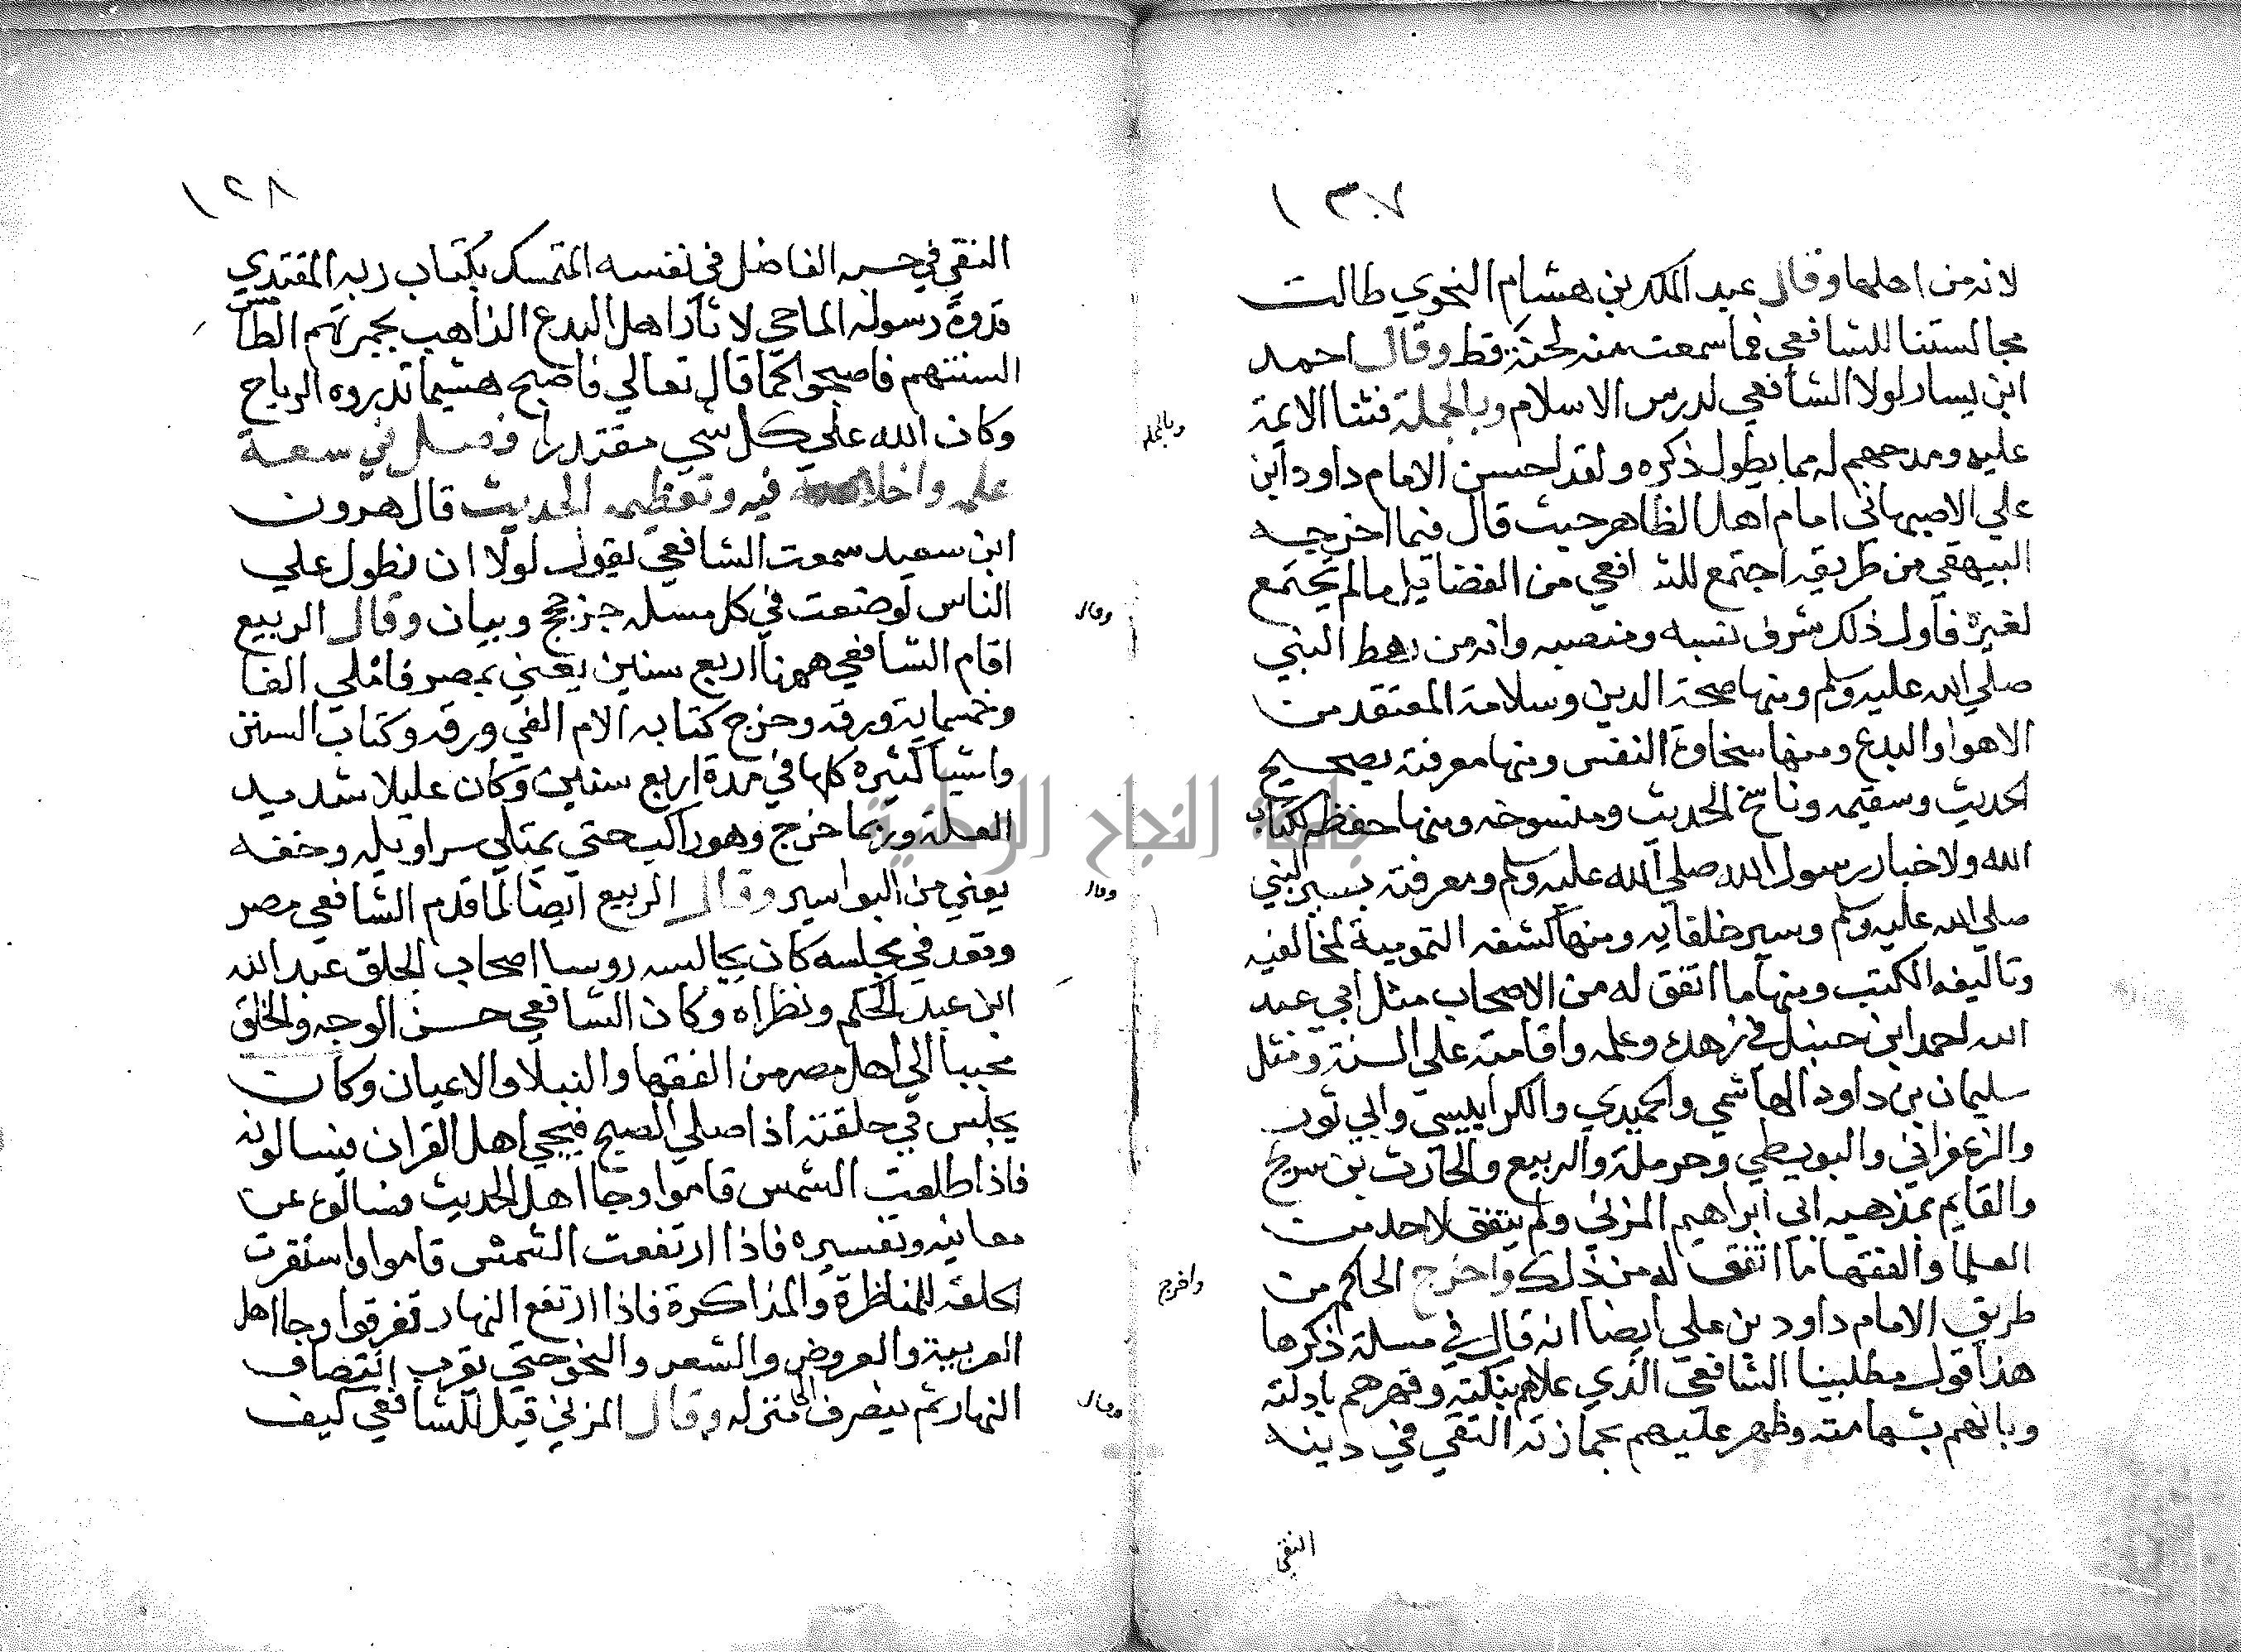 ١٣٠٧
لانه من اهلها وقال عبد الملك بن هشام النحوي طالت
مجالستنا للشافعي فما سمعت منه لحنة قط وقال احمد
ابن يسار لولا الشافعي لدرس الاسلام وبالجملة فثنا الايمة
عليه ومدحهم له مما يطول ذكره ولقد احسن الامام داود ابن
علي الاصبهاني امام اهل الظاهر حيث قال فيما اخرجه
البيهقي من طريقه اجتمع للشافعي من الفضايل ما لم يجتمع
لغيره فاول ذلك شرف نسبه ومنصبه وانه من رهط النبي
صلي الله عليه وسلم ومنها صحة الدين وسلامة المعتقد من
الاهوا والبدع ومنها سخاوة النفس ومنها معرفته بصحيح
الحديث وسقيمه وناسخ الحديث ومنسوخه ومنها حفظه لكتاب
الله ولاخبار رسول الله صلي الله عليه وسلم ومعرفته بسير النبي
صلي الله عليه وسلم وسير خلفايه ومنها كشفه التمويه لمخالفيه
وتاليفه الكتب ومنها ما اتفق له من الاصحاب مثل ابي عبد
الله احمد ابن حنبل في زهده وعلمه واقامته علي السنة ومثل
سليمان بن داود الهاشمي والحميدي والكرابيسي وابي ثور
والزعفراني والبويطي وحرملة والربيع والحارث بن سريج
والقايم بمذهبه ابي ابراهيم المزني ولم يتفق لاحد من
العلما والفقها ما اتفق له من ذلك واخرج الحاكم من
طريق الامام داود بن علي ايضا انه قال في مسلة ذكرها
هذا قول مطلبينا الشافعي الذي علاهم بنكته وقهرهم بادلته
وبانهم بشهامته وظهر عليهم بحمازته التقي في دينه
التقي
وبالجملة
واخرج
١٢٨
النقي في حسبه الفاضل في نفسه المتمسك بكتاب ربه المقتدي
قدوة رسوله الماحي لاثار اهل البدع الذاهب بجمرتهم الطامس
السنتهم فاصبحوا كما قال تعالي فاصبح هشيما تذروه الرياح
وكان الله علي كل شي مقتدرا فصل في سعة
علمه واخلاصه فيه وتعظيمه الحديث قال هرون
ابن سعيد سمعت الشافعي يقول لولا ان نطول علي
الناس لوضعت في كل مسله جزحجج وبيان وقال الربيع
اقام الشافعي ههنا اربع سنين يعني بمصر فاملي الفا
وخمسماية ورقه وخرج كتابه الام الفي ورقه وكتاب السنن
واشيا كثيره كلها في مدة اربع سنين وكان عليلا شديد
العلة وربما خرج وهو راكب حتي يمتلي سراويله وخفه
يعني من البواسير وقال الربيع ايضا لما قدم الشافعي مصر
وقعد في مجلسه كان يجالسه روسا اصحاب الحلق عبد الله
ابن عبد الحكم ونظراه وكان الشافعي حسن الوجه والخلق
محببا الي اهل مصر من الفقها والنبلا والاعيان وكان
يجلس في حلقته اذا صلي الصبح فيجي اهل القران فيسالونه
فاذا طلعت الشمس قاموا وجا اهل الحديث فسالوه عن
معانيه وتفسيره فاذا ارتفعت الشمس قاموا واستقرت
الحلقه للمناظرة والمذاكرة فاذا ارتفع النهار تفرقوا وجا اهل
العربية والعروض والشعر والنحو حتي يقرب انتصاف
النهار ثم ينصرف الي منزله وقال المزني قيل للشافعي كيف
وقال
وقال
وقال
جامعة النجاح الوطنية